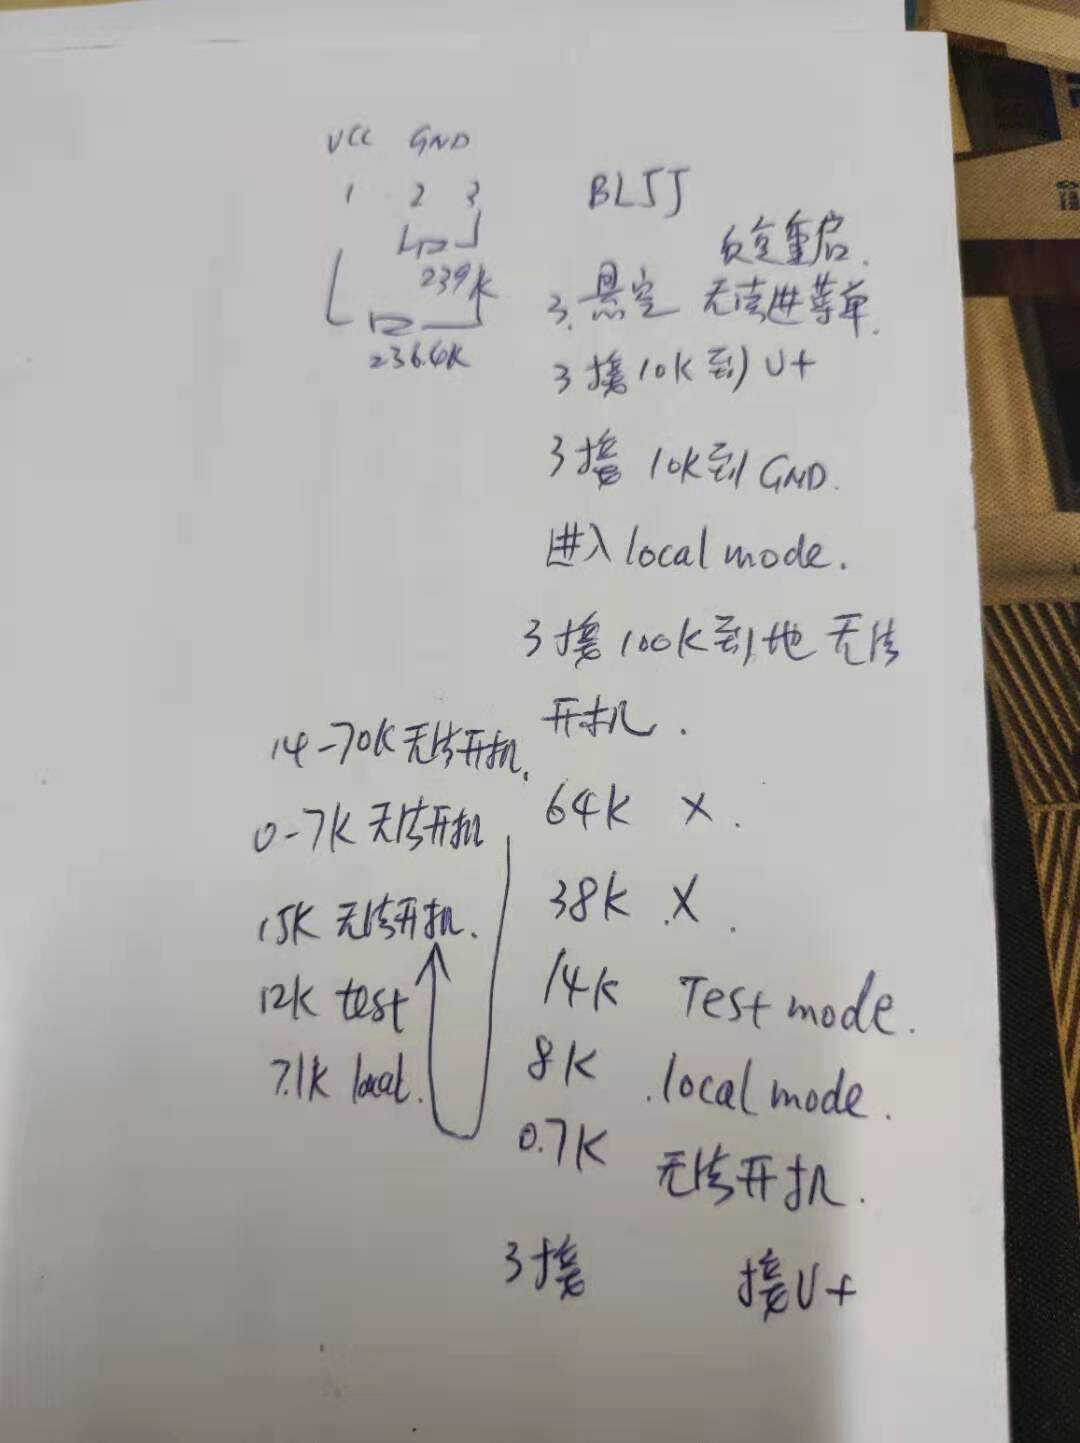 VCC GND
1 2 3
239K
236.6K
BL5J
反复重启.
3.悬空 无法进菜单.
3接10K到U+
3接10K到GND.
进入local mode.
3接100K到地 无法
开机.
64K X.
38K X.
14K Test mode.
8K .local mode.
0.7K 无法开机.
3接 接U+
14-70K无法开机.
0-7K 无法开机
15K 无法开机.
12K test
7.1K local.